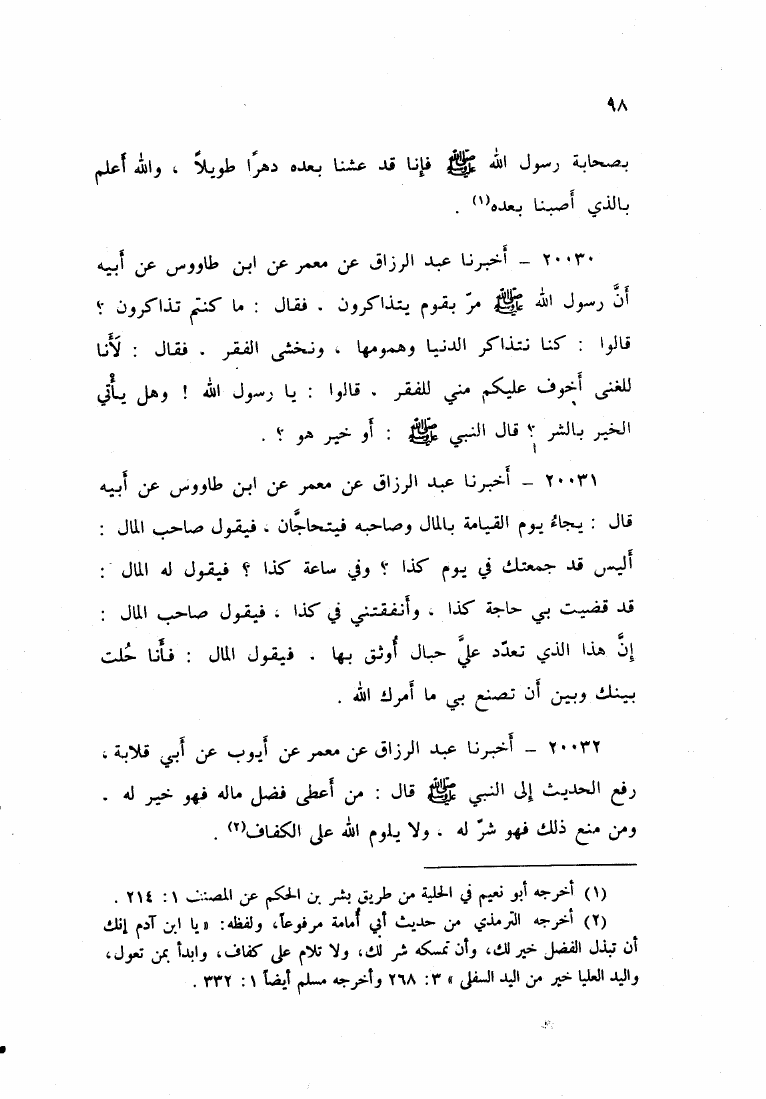 ٩٨
بصحابة رسول الله ﷺ فإنا قد عشنا بعده دهرًا طويلاً ، والله أعلم
بالذي أصبنا بعده(١) .
٢٠٠٣٠ – أخبرنا عبد الرزاق عن معمر عن ابن طاووس عن أبيه
أنَّ رسول الله ﷺ مرّ بقوم يتذاكرون . فقال : ما كنتم تذاكرون ؟
قالوا : كنا نتذاكر الدنيا وهمومها ، ونخشى الفقر . فقال : لَأَنا
للغنى أخوف عليكم مني للفقر . قالوا : يا رسول الله ! وهل يأْتي
الخير بالشر ؟ قال النبي ﷺ : أو خير هو ؟ .
٢٠٠٣١ – أخبرنا عبد الرزاق عن معمر عن ابن طاووس عن أبيه
قال : يجاءُ يوم القيامة بالمال وصاحبه فيتحاجَّان ، فيقول صاحب المال :
أليس قد جمعتك في يوم كذا ؟ وفي ساعة كذا ؟ فيقول له المال :
قد قضيت بي حاجة كذا ، وأنفقتني في كذا ، فيقول صاحب المال :
إنَّ هذا الذي تعدّد عليَّ حبال أُوثق بها . فيقول المال : فأَنا حُلت
بينك وبين أن تصنع بي ما أمرك الله .
٢٠٠٣٢ – أخبرنا عبد الرزاق عن معمر عن أيوب عن أبي قلابة ،
رفع الحديث إلى النبي ﷺ قال : من أعطى فضل ماله فهو خير له .
ومن منع ذلك فهو شرّ له ، ولا يلوم الله على الكفاف(٢) .
(١) أخرجه أبو نعيم في الحلية من طريق بشر بن الحكم عن المصنف ١ : ٢١٤ .
(٢) أخرجه الترمذي من حديث أبي أُمامة مرفوعاً، ولفظه: «يا ابن آدم إنك
أن تبذل الفضل خير لك، وأن تمسكه شر لك، ولا تلام على كفاف، وابدأ بمن تعول،
واليد العليا خير من اليد السفلى» ٣: ٢٦٨ وأخرجه مسلم أيضاً ١: ٣٣٢ .